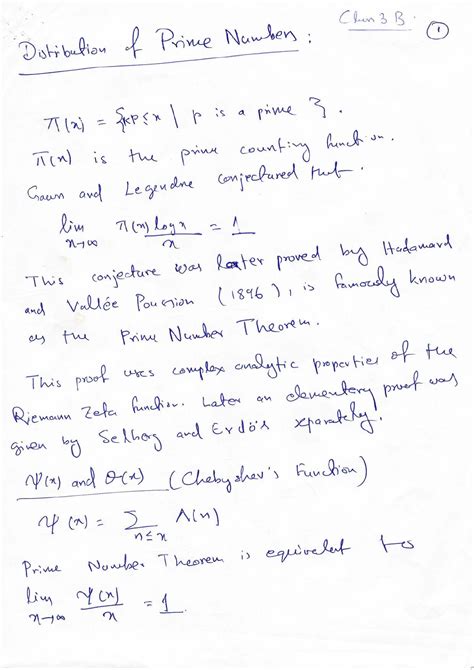 Chen 3 B
①
Distribution of Prime Numbers :
π(x) = {1<p≤x | p is a prime }.
π(x) is the prime counting function.
Gauss and Legendre conjectured that.
lim x→∞ π(x) log x / x = 1
This conjecture was later proved by Hadamard
and Vallée Poussion (1896), is famously known
as the Prime Number Theorem.
This proof uses complex analytic properties of the
Riemann Zeta function. Later an elementery proof was
given by Selberg and Erdö's separately.
Ψ(x) and Θ(x) (Chebyshev's Function)
Ψ(x) = Σ n≤x Λ(n)
Prime Number Theorem is equivalent to
lim x→∞ Ψ(x) / x = 1